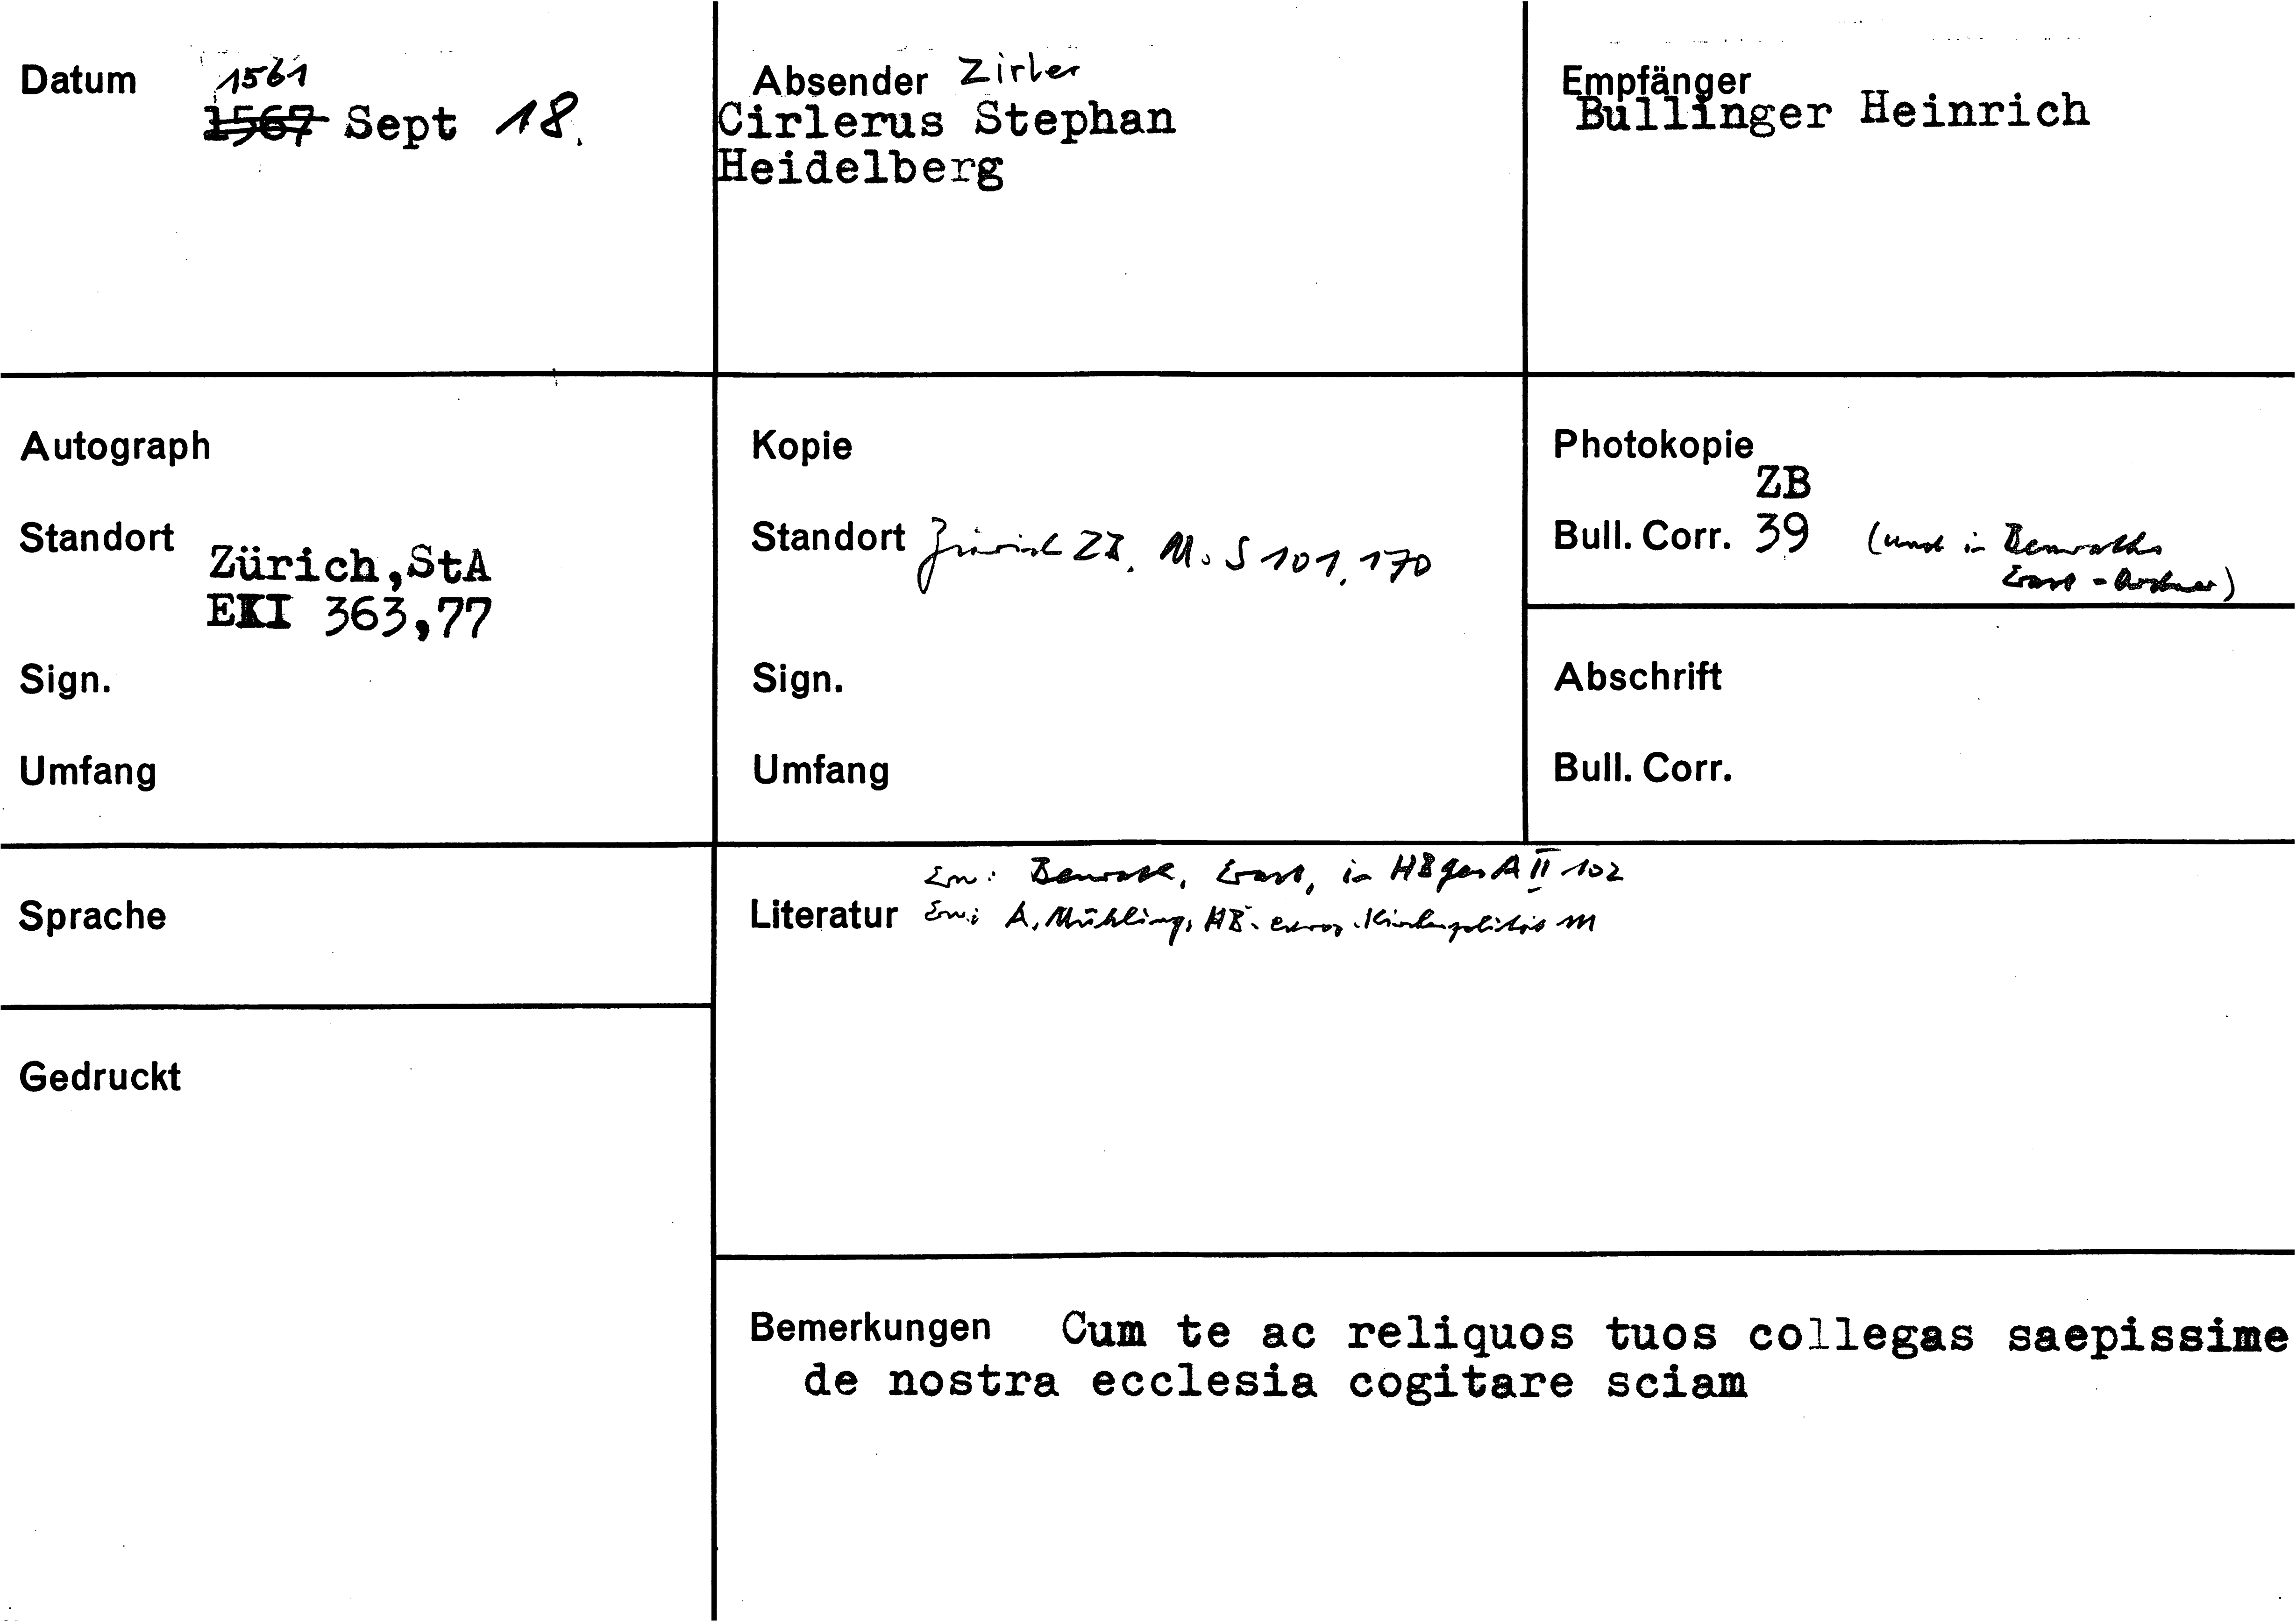 Datum 1561
1567 Sept 18.
Absender Zirler
Cirlerus Stephan
Heidelberg
Empfänger
Bullinger Heinrich
Autograph
Standort
Zürich, StA
EII 363,77
Sign.
Umfang
Kopie
Standort Zürich ZB, Ms S 101, 170
Sign.
Umfang
Photokopie
ZB
Bull. Corr. 39 (und in Benraths
Erast-Ordner)
Abschrift
Bull. Corr.
Sprache
Gedruckt
Erw: Benrath, Erast, in HBgesA II 102
Literatur Erw: A. Mühling, HB. europ. Kirchenpolitik 111
Bemerkungen Cum te ac reliquos tuos collegas saepissime
de nostra ecclesia cogitare sciam